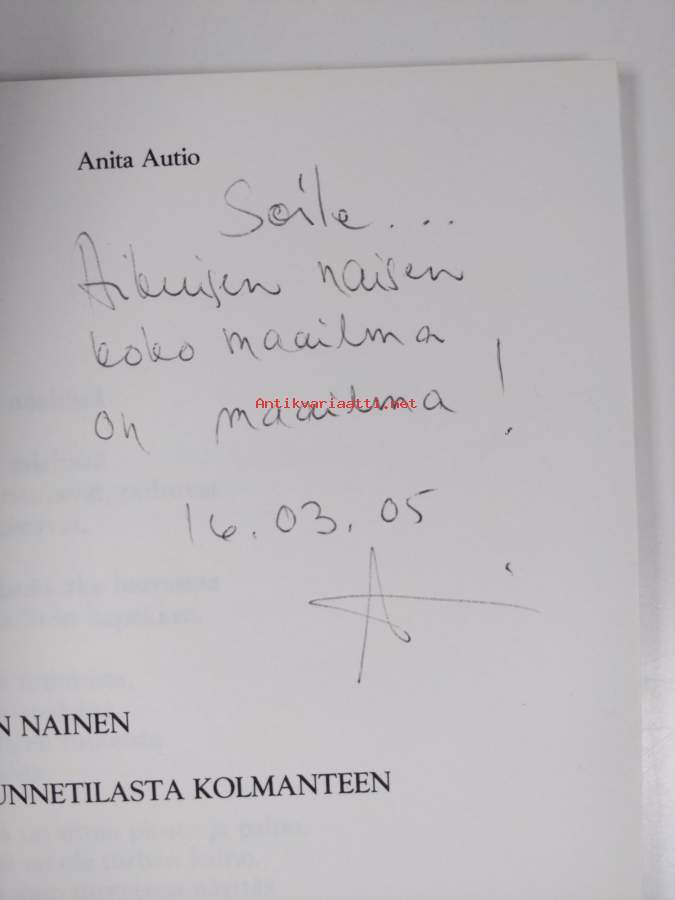 Anita Autio
Soile...
Aikuisen naisen
koko maailma
on maailma!
Antikvariaatti.net
16.03.05
N NAINEN
UNNETILASTA KOLMANTEEN